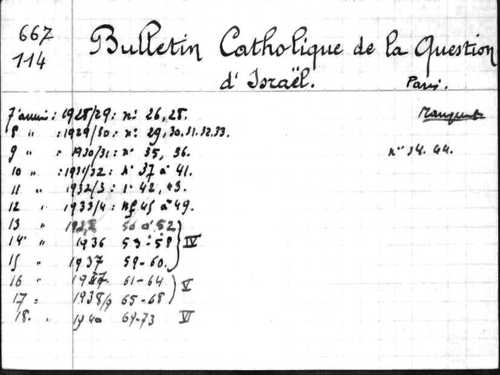 667
114
Bulletin Catholique de la Question
d'Israël.
Paris.
7 année : 1928/29 : n° 26, 28.
Manquent
8 " : 1929/30 : n° 29, 30, 31. 32. 33.
9 " : 1930/31 : n° 35, 36.
n° 34. 44.
10 " : 1931/32 : n° 37 à 41.
11 " 1932/3 : n° 42, 43.
12 " 1933/4 : n° 45 à 49.
13 " 50 à 52
14 " 1936 53-58 IV
15 " 1937 59-60.
16 " 61-64 V
17 " 1938/9 65-68
18. " 1940 69-73 VI